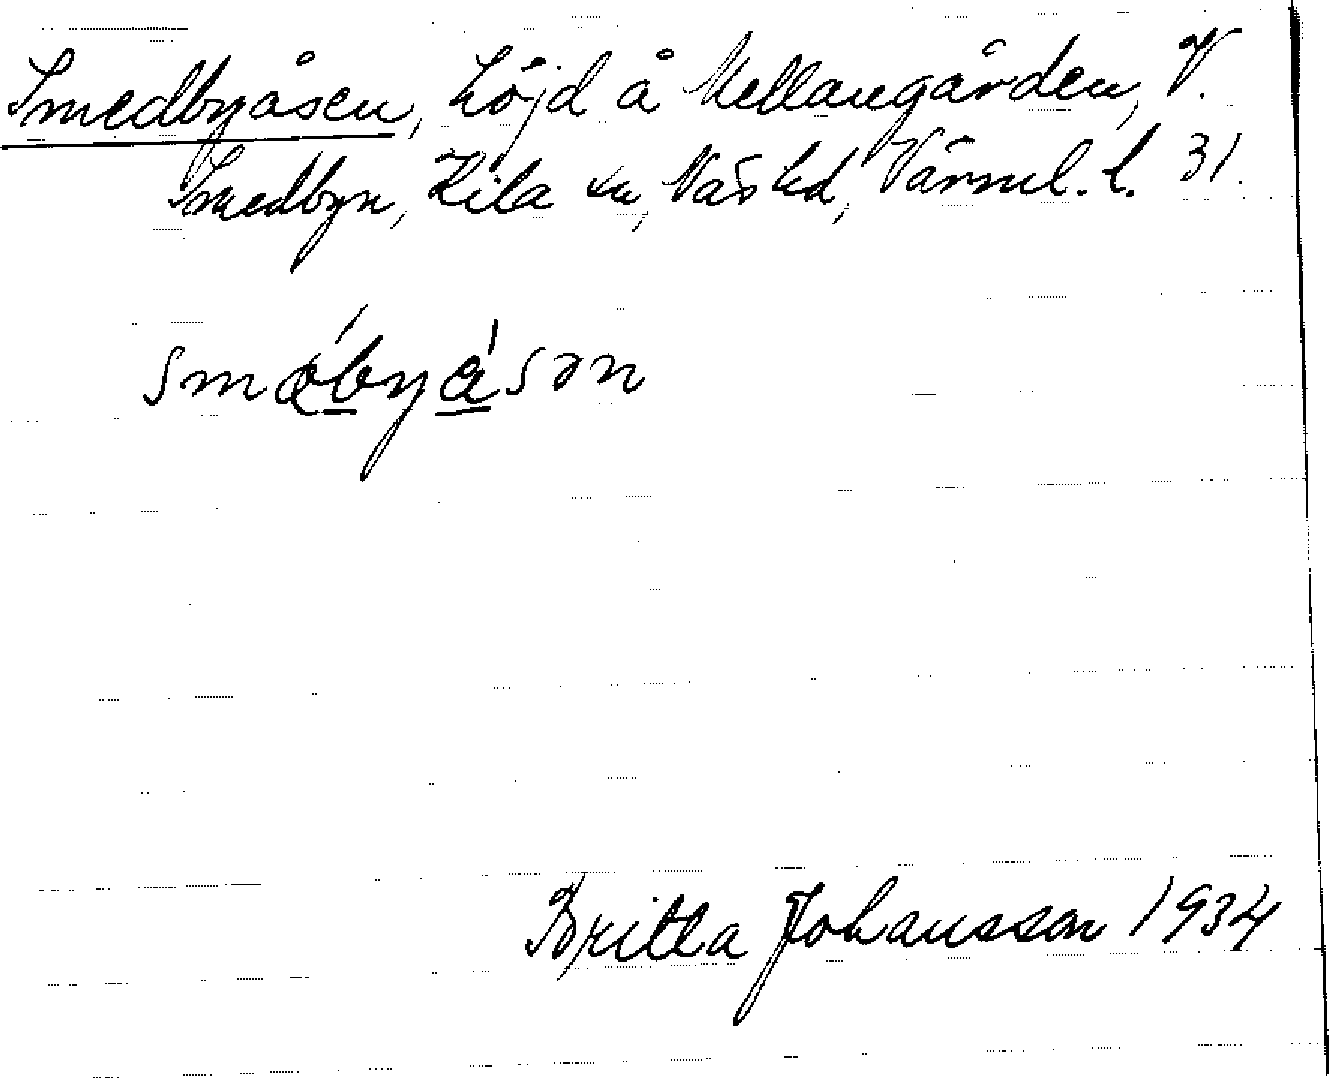 Smedbyåsen, höjd å Mellangården, V.
Smedbyn, Kila sn, Näs hd, Värml. l. 31.
Britta Johansson 1934